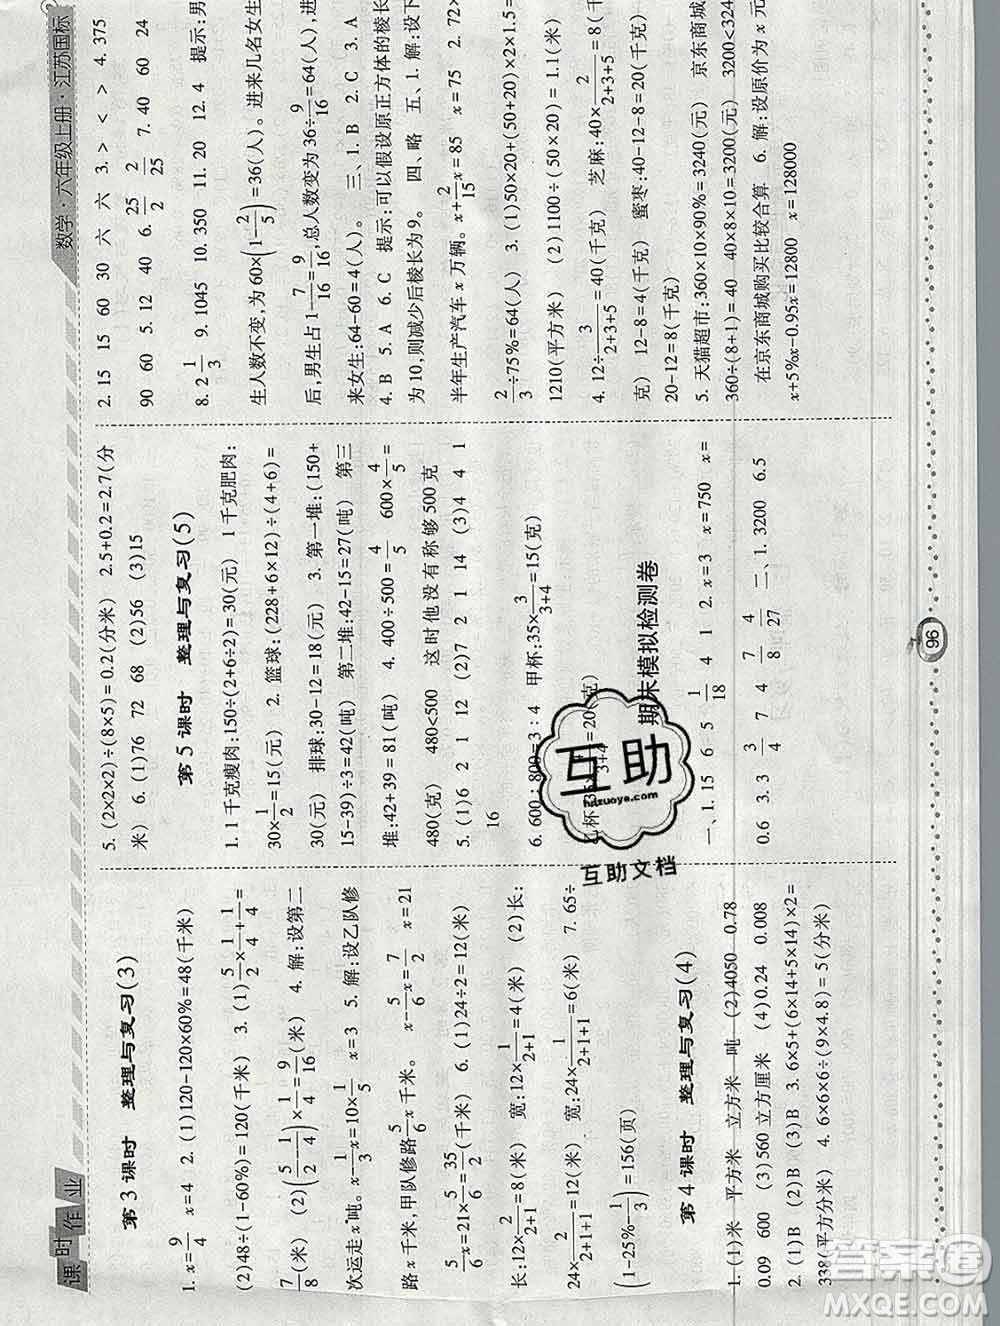 课时作业
数学·六年级上册·江苏国标
第3课时 整理与复习(3)
1. x=9/4 x=4 2. (1)120-120×60%=48(千米)
(2)48÷(1-60%)=120(千米) 3. (1)5/2×1/4+1/4=
7/8(米) (2)(5/2-1/4)×1/4=9/16(米) 4. 解:设第二
次运走x吨。x-1/3x=10×1/5 x=3 5. 解:设乙队修
路x千米,甲队修路5/6x千米。 x-5/6x=7/2 x=21
5/6x=21×5/6=35/2(千米) 6. (1)24÷2=12(米)
长:12×2/(2+1)=8(米) 宽:12×1/(2+1)=4(米) (2)长:
24×2/(2+1+1)=12(米) 宽:24×1/(2+1+1)=6(米) 7. 65÷
(1-25%-1/3)=156(页)
第4课时 整理与复习(4)
1. (1)米 平方米 立方米 吨 (2)4050 0.78
0.09 600 (3)560 立方厘米 (4)0.24 0.008
2. (1)B (2)B (3)B 3. 6×5+(6×14+5×14)×2=
338(平方分米) 4. 6×6×6÷(9×4.8)=5(分米)
5. (2×2×2)÷(8×5)=0.2(分米) 2.5+0.2=2.7(分
米) 6. (1)76 72 68 (2)56 (3)15
第5课时 整理与复习(5)
1. 1千克瘦肉:150÷(2+6÷2)=30(元) 1千克肥肉:
30×1/2=15(元) 2. 篮球:(228+6×12)÷(4+6)=
30(元) 排球:30-12=18(元) 3. 第一堆:(150+
15-39)÷3=42(吨) 第二堆:42-15=27(吨) 第三
堆:42+39=81(吨) 4. 400÷500=4/5 600×4/5=
480(克) 480<500 这时他没有称够500克
5. (1)6 2 1 12 (2)7 2 1 14 (3)4 4 1
16
6. 600:800=3:4 甲杯:35×3/(3+4)=15(克)
乙杯:35×4/(3+4)=20(克)
期末模拟检测卷
一、1. 15 6 5 1/18 4 1 2. x=3 x=750 x=
0.6 3. 3 3/4 7 4 7/8 4/27 二、1. 3200 6.5
2. 15 15 60 30 六 六 3. > < > 4. 375
90 60 5. 12 40 6. 25/2 2/25 7. 40 60 24
8. 2 1/3 9. 1045 10. 350 11. 20 12. 4 提示:男
生人数不变,为60×(1-2/5)=36(人)。进来几名女生
后,男生占1-7/16=9/16,总人数变为36÷9/16=64(人),进
来女生:64-60=4(人)。 三、1. B 2. C 3. A
4. B 5. A 6. C 提示:可以假设原正方体的棱长
为10,则减少后棱长为9。 四、略 五、1. 解:设下
半年生产汽车x万辆。x+2/15x=85 x=75 2. 72×
2/3÷75%=64(人) 3. (1)50×20+(50+20)×2×1.5=
1210(平方米) (2)1100÷(50×20)=1.1(米)
4. 12÷3/(2+3+5)=40(千克) 芝麻:40×2/(2+3+5)=8(千
克) 12-8=4(千克) 蜜枣:40-12-8=20(千克)
20-12=8(千克)
5. 天猫超市:360×10×90%=3240(元) 京东商城:
360÷(8+1)=40 40×8×10=3200(元) 3240>3200
在京东商城购买比较合算 6. 解:设原价为x元
x+5%x-0.95x=12800 x=128000
96
互助
hdzuoye.com
互助文档
答案圈
MXQE.COM